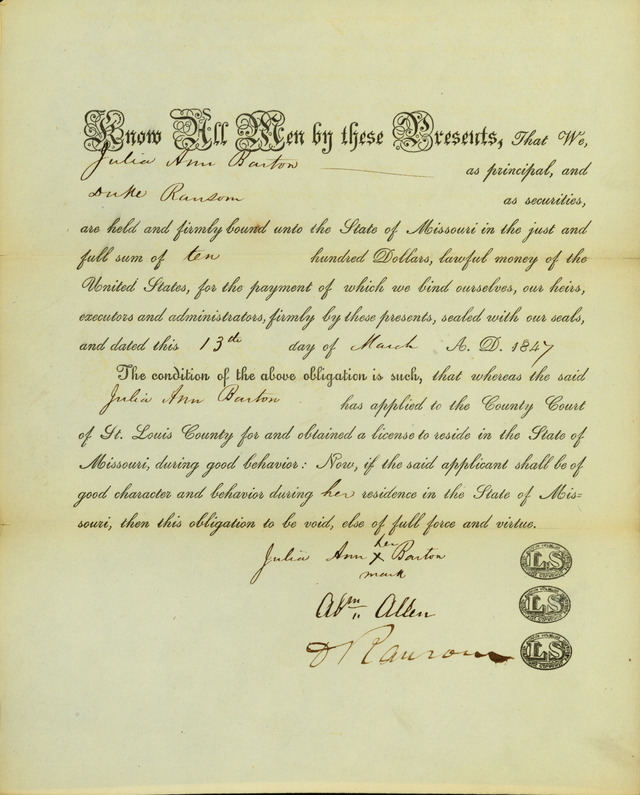 Know All Men by these Presents, That We,
Julia Ann Barton as principal, and
Duke Ransom as securities,
are held and firmly bound unto the State of Missouri in the just and
full sum of ten hundred Dollars, lawful money of the
United States, for the payment of which we bind ourselves, our heirs,
executors and administrators, firmly by these presents, sealed with our seals,
and dated this 13th day of March A. D. 1847
The condition of the above obligation is such, that whereas the said
Julia Ann Barton has applied to the County Court
of St. Louis County for and obtained a license to reside in the State of
Missouri, during good behavior: Now, if the said applicant shall be of
good character and behavior during her residence in the State of Mis=
souri, then this obligation to be void, else of full force and virtue.
her
Julia Ann X Barton
mark
LS
Abm Allen
LS
D Ransom
LS